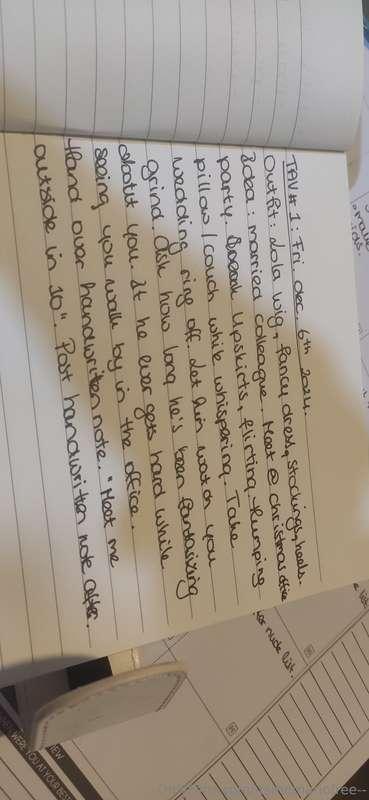 TAV # 1 : Fri dec. 6th 2024.
Outfit: Lola wig, fancy dress, stockings, heels.
Idea: married colleague. Meet @ christmas office
party. Upskirts, flirting, humping
pillow / couch while whispering. Take
wedding ring off. Let him watch you
grind. Ask how long he's been fantasizing
about you. If he ever gets hard while
seeing you walk by in the office.
Hand over handwritten note. "Meet me
outside in 10". Post handwritten note after.
nude list.
WERE YOU AT YOUR BEST